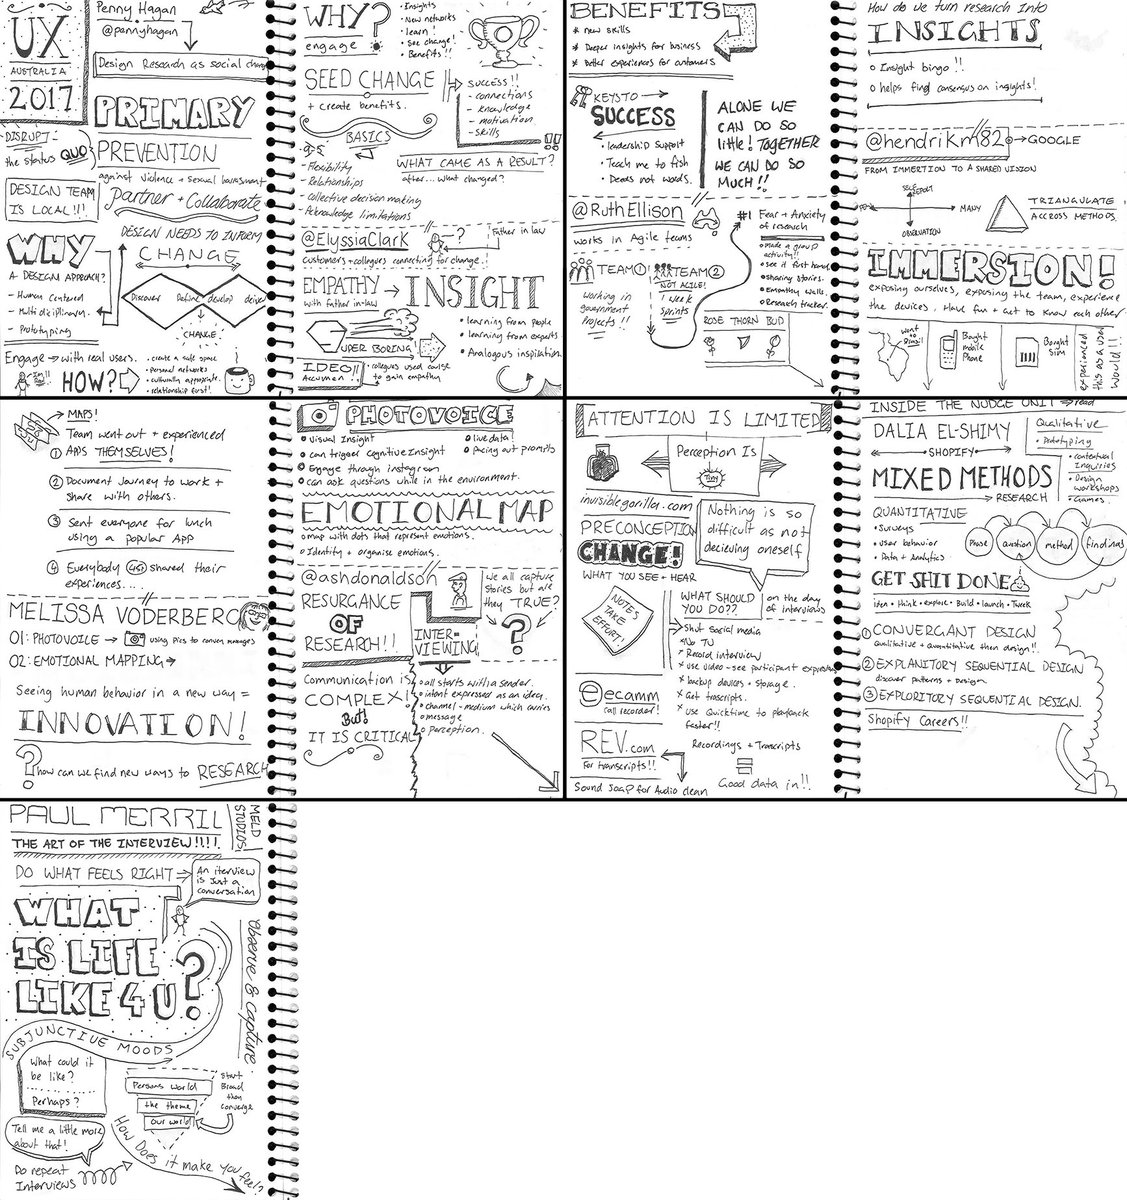 UX
AUSTRALIA
2017
Penny Hagan
@pennyhagan
Design Research as social change
PRIMARY
PREVENTION
against violence + sexual harassment
Partner + Collaborate
DISRUPT:
the status QUO
DESIGN TEAM
IS LOCAL!!!
WHY
A DESIGN APPROACH?
- Human Centered
- Multi diziplinarim.
- Prototyping
DESIGN NEEDS TO INFORM
CHANGE
Discover Define develop deliver
CHANGE
Engage → with real users.
HOW?
• create a safe space
• personal networks
• culturally appropriate.
• relationship first!
WHY?
engage
• Insights
• New networks
• learn!
• See change!
• Benefits!!
SEED CHANGE
+ create benefits.
→ SUCCESS!!
- connections
- knowledge
- motivation
- skills
BASICS
- Flexibility
- Relationships
- collective decision making
- Acknowledge limitations
!!
WHAT CAME AS A RESULT?
after... what changed?
@ElyssiaClark
customers + collegues connecting for change!
?
Father in law
EMPATHY → INSIGHT
with father in-law
SUPER BORING!
IDEO!!
Accumen!
collegues used course
to gain empathy
• learning from people
• learning from experts.
• Analogous inspiration.
BENEFITS
* new skills
* Deeper insights for business
* better experiences for customers
KEYS TO
SUCCESS
• leadership support
• Teach me to fish
• Deeds not words.
ALONE WE
CAN DO SO
little! TOGETHER
WE CAN DO SO
MUCH!!
@RuthEllison
works in Agile teams
TEAM ①
working in
government
projects!!
TEAM ②
NOT AGILE!
1 week
sprints
#1 Fear + Anxiety
of research
• made a group
activity!!
• see it first hand
• sharing stories.
• Empathy walls
• Research tracker.
ROSE THORN BUD
How do we turn research into
INSIGHTS
o Insight bingo!!
o helps find consensus on insights!
@hendrikm82 → GOOGLE
FROM IMMERTION TO A SHARED VISION
SELF
REPORT
MANY
OBSERVATION
TRIANGULATE
ACCROSS METHODS.
IMMERSION!
exposing ourselves, exposing the team, experience
the devices. Have fun + get to know each other
went
to Brazil
Bought
mobile
Phone
Bought
Sim
experienced
this as a user
would!!!
→ MAPS!
Team went out + experienced
① APPS THEMSELVES!
② Document Journey to work +
share with others.
③ Sent everyone for lunch
using a popular App
④ Everybody shared their
experiences....
MELISSA VODERBERG
01: PHOTOVOICE → using pics to convey messages
02: EMOTIONAL MAPPING →
Seeing human behavior in a new way =
INNOVATION!
? how can we find new ways to RESEARCH
PHOTOVOICE
• Visual Insight
• can trigger Cognitive Insight
• Engage through instagram
• can ask questions while in the environment.
• live data!
• Pacing out prompts
EMOTIONAL MAP
o map with dots that represent emotions.
o Identify + organise emotions.
@ashdonaldson
RESURGANCE
OF
RESEARCH!!
we all capture
stories but are
they TRUE?
?
INTER-
VIEWING!
Communication is
COMPLEX!
But!
IT IS CRITICAL
• all starts with a sender.
• intent expressed as an idea.
• channel - medium which carries
• message
• perception.
ATTENTION IS LIMITED
Perception Is
Tiny
invisiblegorilla.com
PRECONCEPTION
CHANGE!
WHAT YOU SEE + HEAR
Nothing is so
difficult as not
decieving oneself
NOTES
TAKE
EFFORT!
WHAT SHOULD
YOU DO??
on the day
of interviews
• Shut Social media
• No TV
• Record interview
• use video - see participant expression
• backup devices + storage.
• Get transcripts.
• Use Quicktime to playback
faster!!
ecamm
call recorder!
REV.com
for transcripts!!
Recordings + Transcripts
=
Good data in!!
Sound Soap for Audio clean
INSIDE THE NUDGE UNIT → read
DALIA EL-SHIMY
SHOPIFY
MIXED METHODS
RESEARCH
Qualitative
• Prototyping
• contextual
Inquiries
• Design
workshops
• Games.
QUANTITATIVE
• Surveys
• user behavior
• Data + Analytics
Phase question method findings
GET SHIT DONE
idea • think • explore • Build • launch • Tweek
① CONVERGANT DESIGN
qualitative + quantitative then design!!
② EXPLANITORY SEQUENTIAL DESIGN
discover patterns + design
③ EXPLORITORY SEQUENTIAL DESIGN.
Shopify Careers!!
PAUL MERRIL
MELD
STUDIOS.
THE ART OF THE INTERVIEW!!!!
DO WHAT FEELS RIGHT →
An iterview
is Just a
conversation
WHAT
IS LIFE
LIKE 4 U?
Observe & Capture
SUBJUNCTIVE MOODS
What could it
be like?
Perhaps?
Persons world
the theme
Our world
Start
Broad
then
Converge
Tell me a little more
about that!
Do repeat
Interviews
How Does it make you feel?